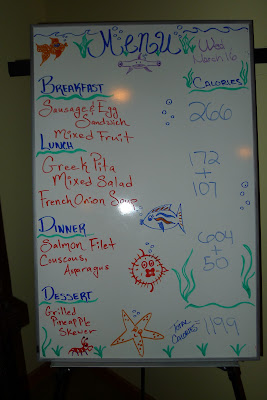 Menu
Wed
March 16
Breakfast
Calories
Sausage & Egg
Sandwich
266
Mixed Fruit
Lunch
Greek Pita
172
Mixed Salad
+
French Onion Soup
107
Dinner
Salmon Filet
604
Couscous,
+
Asparagus
50
Dessert
Grilled
Pineapple
Skewer
Total
Calories = 1199